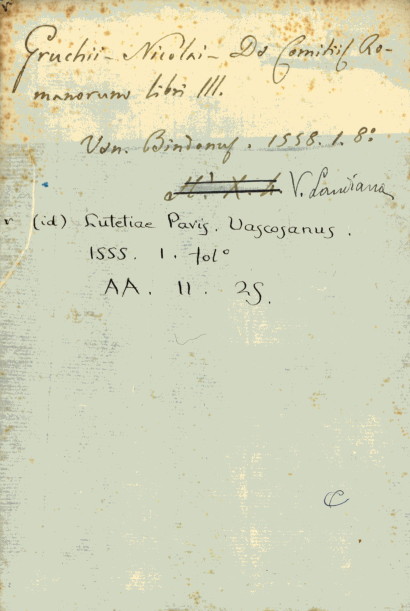 Gruchii - Nicolai - De Comitiis Ro-
manorum libri III.
Ven. Bindonus. 1558. 1. 8°
V. Landiana
(id) Lutetiae Paris. Vascosanus.
1555. 1. fol°
AA. 11. 25.
C